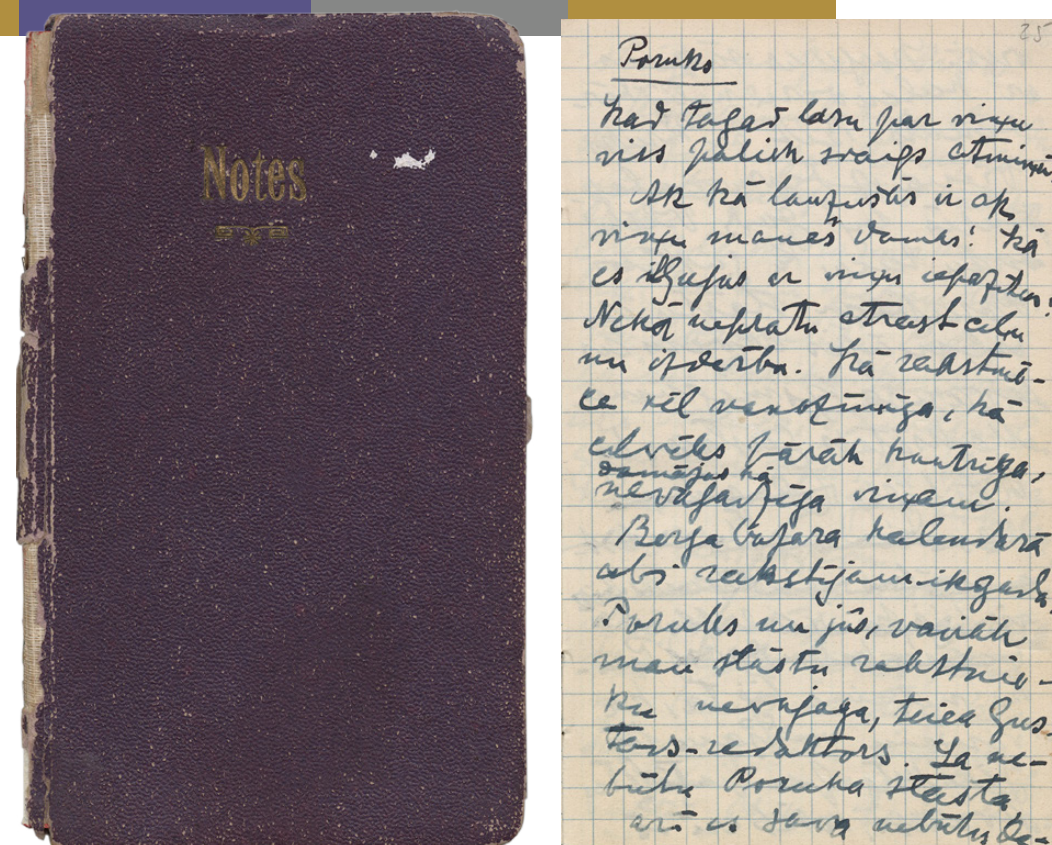 Notes
25
Poruks
Kad tagad lasu par viņu
viss paliek svaigs atmiņā
Ak kā ir ap
viņu manas domas! Kā
es ilgojos ar viņu iepazīties!
Nekā nepratu atrast ceļu
un izdarību. Kā rakstnie-
ce vēl nenozīmīga, kā
cilvēks pārāk kautrīga,
domājos kā
nevajadzīga viņam.
Berga Bazara kalendārā
abi rakstījām ikgadu,
Poruks un jūs, vairāk
man stāstu rakstnie-
ku nevajaga, teica Gus
tavs-redaktors. Ja ne-
būtu Poruka stāsta,
arī es sava nebūtu de-